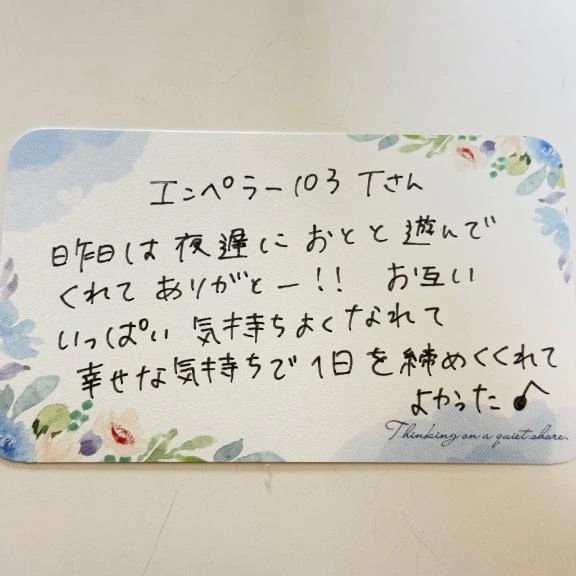 エンペラー103 Tさん
昨日は夜遅におとと遊んで
くれてありがとー!! お互い
いっぱい気持ちよくなれて
幸せな気持ちで1日を締めくくれて
よかった♪
Thinking on a quiet shore.